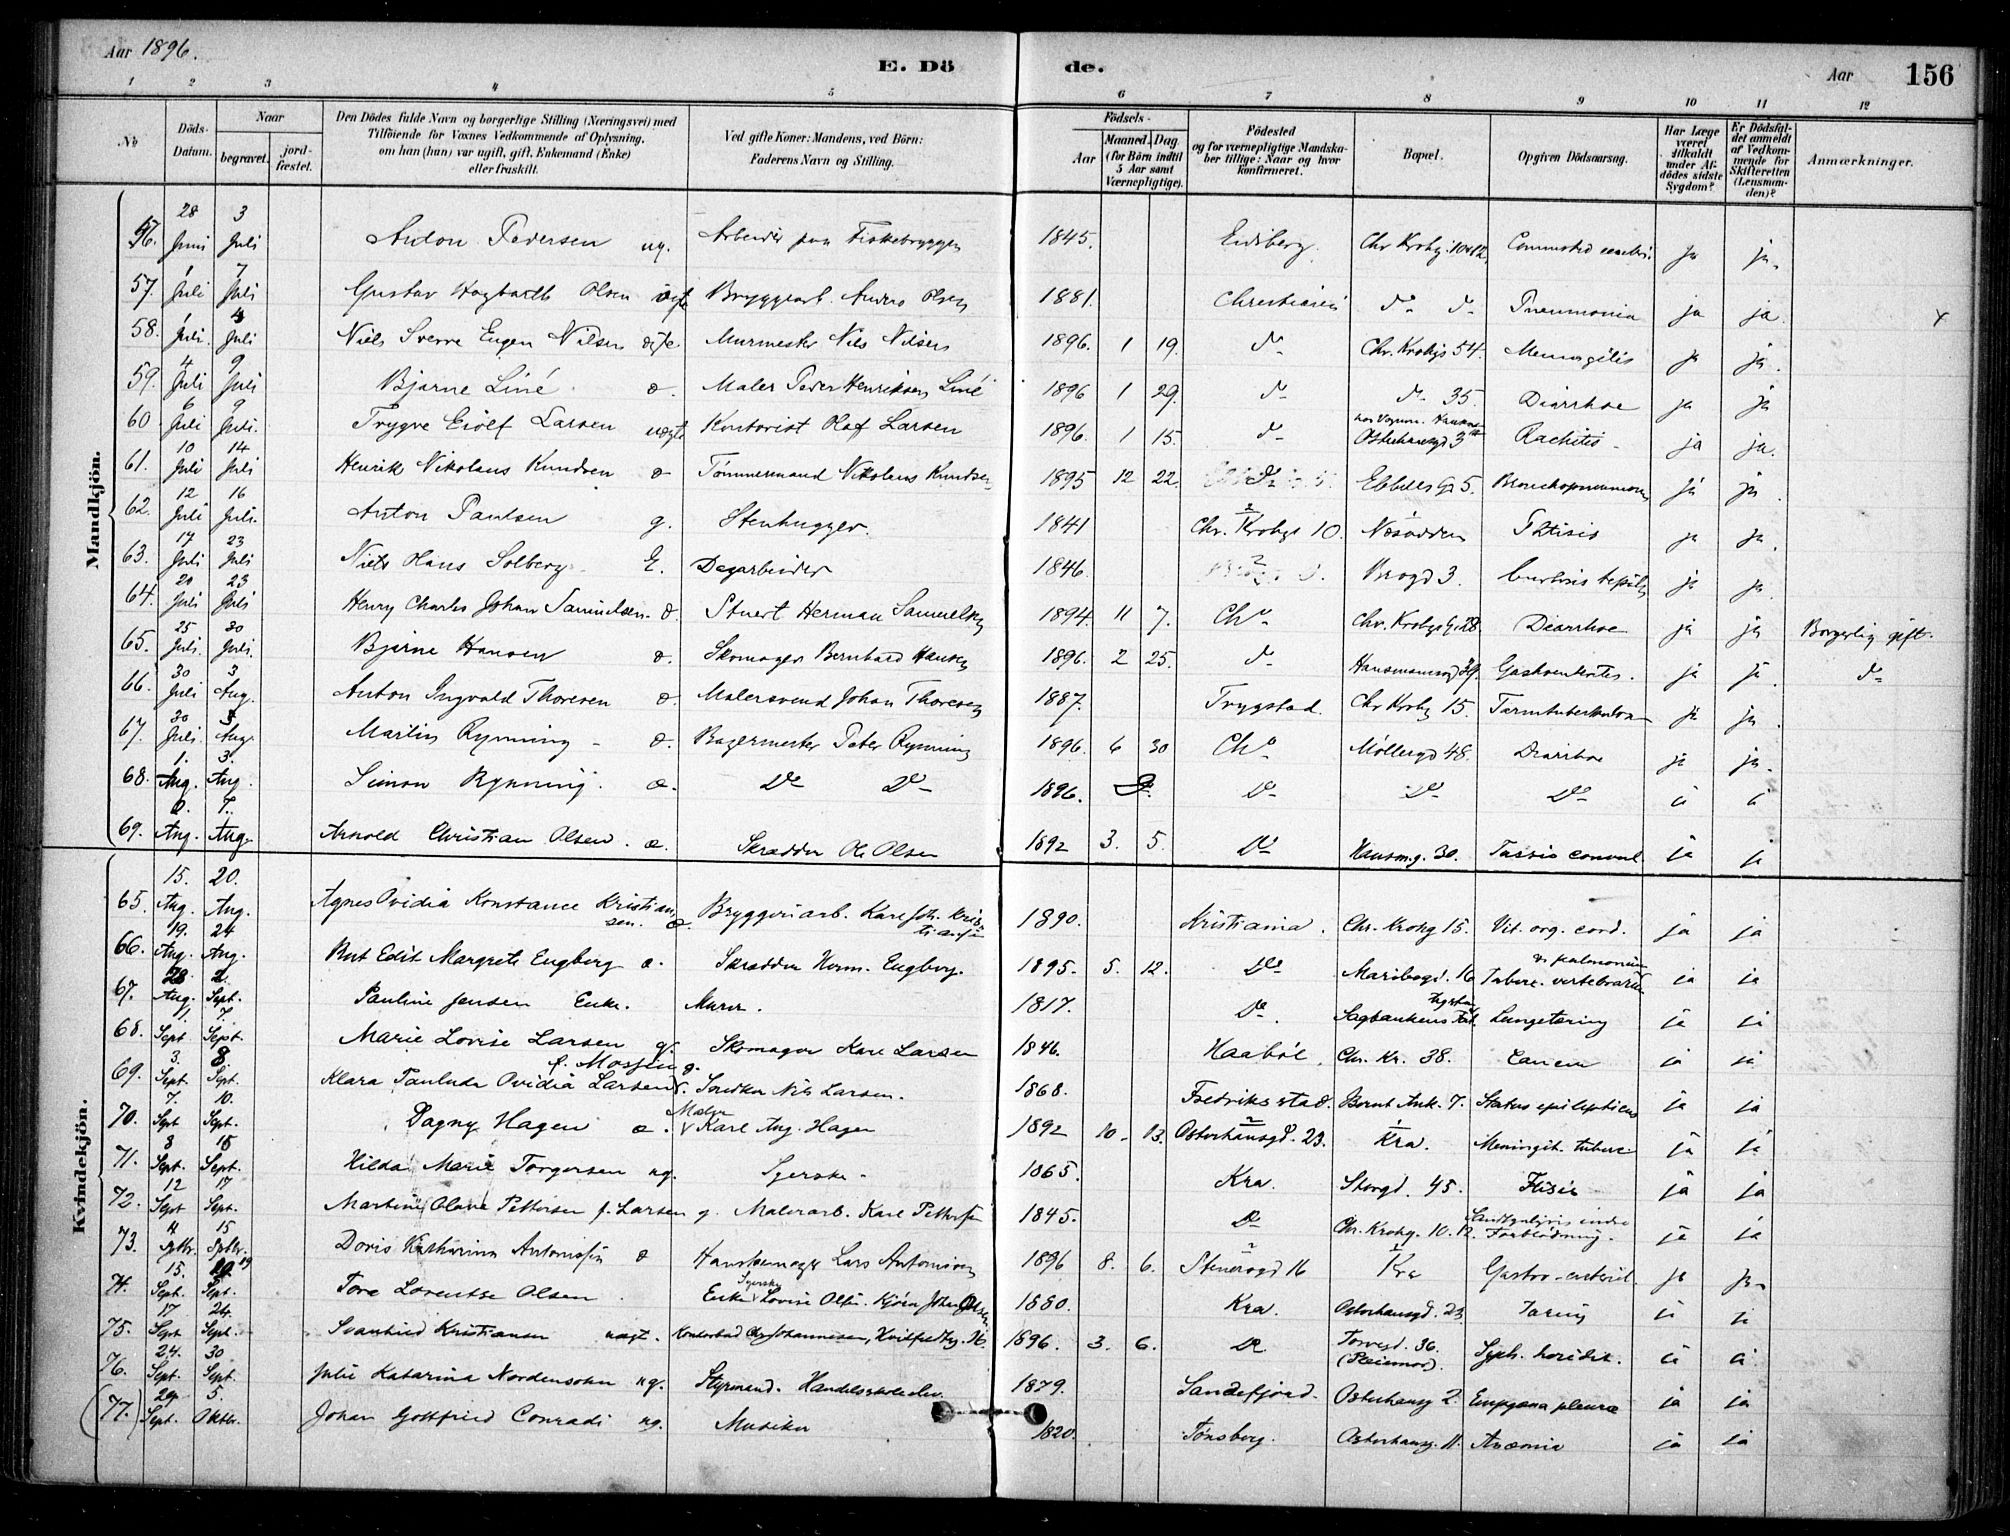 Aar 1896.
E. Dö de.
Aar 156
1 2 3 4 5 6 7 8 9 10 11 12
No
Döds-Datum.
Naar begravet. jordfæstet.
Den Dödes fulde Navn og borgerlige Stilling (Næringsvei) med Tilföiende for Voxnes Vedkommende af Oplysning, om han (hun) var ugift, gift, Enkemand (Enke) eller fraskilt.
Ved gifte Koner: Mandens, ved Börn: Faderens Navn og Stilling.
Födsels- Aar Maaned. Dag. (for Börn indtil 5 Aar samt Værnepligtige).
Födested og for værnepligtige Mandskaber tillige: Naar og hvor konfirmeret.
Bopæl.
Opgiven Dödsaarsag.
Har Læge været tilkaldt under Afdödes sidste Sygdom?
Er Dödsfaldet anmeldt af Vedkommende for Skifteretten (Lensmanden)?
Anmærkninger.
Mandkjön.
56. 28 Juni 3 Juli Anton Pedersen ug. Arbeider paa Fiskebryggen 1845. Eidsberg. Chr Krohg. 10 & 12 ja ja.
57. Juli 7 Juli Gustav Hagbarth Olsen Bryggearb. Anders Olsen 1881. Christiania do do Pneumonia ja ja.
58. Juli 4 Juli Niels Sverre Eugen Nilsen Murmester Nils Nilsen 1896. 1 19. do Chr. Krohgs 54. ja ja.
59. 4 Juli 9 Juli Bjarne Liné Maler Peder Henriksen Liné 1896 1 29. do do 35. Diarrhoe ja ja
60 6 Juli 9 Juli. Trygve Eiolf Larsen Kontorist Olaf Larsen 1896. 1 15. do Osterhausgd 3 Rachitis ja ja.
61. 10 Juli 14 Juli Henrik Nikolaus Knudsen Tømmermand Nikolaus Knudsen 1895 12 22. do Ebbells G. 5. Bronchopneumoni ja ja.
62. 12 Juli 16 Juli. Anton Paulsen g. Stenhugger. 1841 Chr. Krohgs 10. Næsodden Phtisis ja ja.
63. 17 Juli 23 Juli Niels Hans Solberg E. Dagarbeider 1846. Brogd 3. ja ja.
64. 20 Juli 23 Juli Henry Charles Johan Samuelsen Stuert Herman Samuelsen 1894. 11 7. Cha Chr. Krohgs G. 28. Diarrhoe ja ja Borgerlig gift.
65. 25 Juli. 30 Juli. Bjarne Hansen Skomager Bernhard Hansen 1896. 2 25. do Hausmannsgd 39. Gastroenterites. ja ja. do
66. 30 Juli 3 Aug. Anton Ingvald Thoresen Malersvend Johan Thoresen 1887. Trygstad. Chr Krohg 15. Tarmtuberkulose ja ja.
67. 30 Juli. Aug. Martin Rynning Bagermester Peter Rynning 1896. 6 30 Cha Møllergd 48. Diarrhoe ja ja.
68. 1. Aug. 3. Aug. Simon Rynning. Do Do 1896. Do Do Do Do
69. Aug. 7. Aug. Arnold Christian Olsen. Skrædder Ole Olsen 1892 3. 5. Do Hausm.g. 30. Tussis convul. ja ja
Kvindekjön.
65. 15. Aug. 20. Aug. Agnes Ovidia Konstance Kristiansen. Bryggeriarb. Karl Joh. Kristiansen 1890. Kristiania. Chr. Krohg 15. Vit. org. cord. ja ja
66. 19. Aug. 24 Aug. Rut Edit Margrete Engberg Skrædder Herm. Engberg. 1895. 5. 12. Do Maribogd. 16 Tuberc. vertebrarum & pulmonum ja ja
67. 28 Aug. 2. Sept. Pauline Jensen Enke. Murer. 1817. Do. Sagbankens Lungetæring ja ja
68. Sept 7. Sept. Marie Lovise Larsen f. Mossin g. Skomager Karl Larsen 1846. Haabøl. Chr. Kr. 38. Cancer ja ja
69. 3. Sept. 8 Sept. Klara Paulude Ovidia Larsen Snedker Nils Larsen. 1868. Fredriksstad. Bernt Ank. 7. Status epilepticus ja ja
70. 7. Sept 10. Sept. Dagny Hagen Maler Karl Aug. Hagen 1892 10. 13. Osterhausgd. 23. Kra. Meningit. tuberc. ja ja
71. 8 Sept. 15 Sept. Hilda Marie Torgersen ug. Syerske 1865. Kra. Storgd. 45. Ftisis ja ja
72. 12 Sept 17 Sept. Martine Olava Pettersen f. Larsen g. Malerarb. Karl Pettersen 1845. Do Chr. Krohg. 10. 12. indre Forblødning. ja ja
73. 11 Sptbr. 15 Sptbr. Doris Katharina Antonissen Hanskemager Lars Antonissen 1896 8. 6. Stenersgd 16 Kra Gastro-enterit. ja ja
74. 15. Sept. 19 Sept. Tora Lorentse Olsen Enke Syerske Lovise Olsen. 1880. Kra. Osterhausgd. 23. Tæring ja ja
75. 17 Sept 24. Sept. Svanhild Kristiansen uægt. Kontorbud Chr. Johannesen, Hvitfeldtsg. 16. 1896. 3. 6. Do Torvegd. 36. (Pleiemor). Syph. heredit. ja ja
76. 24. Sept. 30 Sept. Julie Katarina Nordensohn ug. Styrmand. 1879. Sandefjord. Osterhausg 2. Empyema pleuræ ja ja
(77.) 29 Sept. 5. Oktbr. Johan Gottfried Conradi ug. Musiker 1820. Tønsberg. Osterhausg. 11. Anæmia ja ja